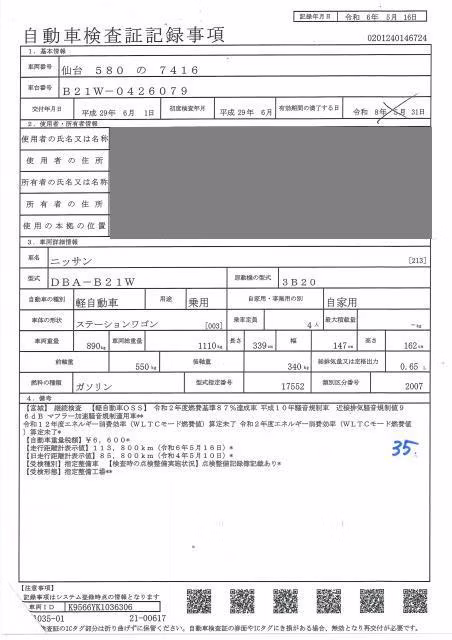 記録年月日 令和 6年 5月 16日
自動車検査証記録事項 0201240146724
1. 基本情報
車両番号 仙台 580 の 7416
車台番号 B21W-0426079
交付年月日 平成 29年 6月 1日 初度検査年月 平成 29年 6月 有効期間の満了する日 令和 8年 5月 31日
2. 使用者・所有者情報
使用者の氏名又は名称
使用者の住所
所有者の氏名又は名称
所有者の住所
使用の本拠の位置
3. 車両詳細情報
車名 ニッサン [213]
型式 DBA-B21W 原動機の型式 3B20
自動車の種別 軽自動車 用途 乗用 自家用・事業用の別 自家用
車体の形状 ステーションワゴン [003] 乗車定員 4人 最大積載量 -kg
車両重量 890kg 車両総重量 1110kg 長さ 339cm 幅 147cm 高さ 162cm
前軸重 550kg 後軸重 340kg 総排気量又は定格出力 0.65 L
燃料の種類 ガソリン 型式指定番号 17552 類別区分番号 2007
4. 備考
【宮城】 継続検査 【軽自動車OSS】 令和2年度燃費基準87%達成車 平成10年騒音規制車 近接排気騒音規制値9
6dB マフラー加速騒音規制適用車**
令和12年度エネルギー消費効率(WLTCモード燃費値)算定未了 令和2年度エネルギー消費効率(WLTCモード燃費値
)算定未了*
【自動車重量税額】¥6,600*
【走行距離計表示値】113,800km(令和6年5月16日)*
【旧走行距離計表示値】85,800km(令和4年5月10日)*
【受検種別】指定整備車 【検査時の点検整備実施状況】点検整備記録簿記載あり*
【受検形態】指定整備工場**
35
【注意事項】
記録事項はシステム登録時点の情報となります
車両ID K9566YK1036306
1035-01 21-00617
検査証のICタグ部分は折り曲げずに保管ください。自動車検査証の券面やICタグにき損がある場合、無効となり再交付が必要です。